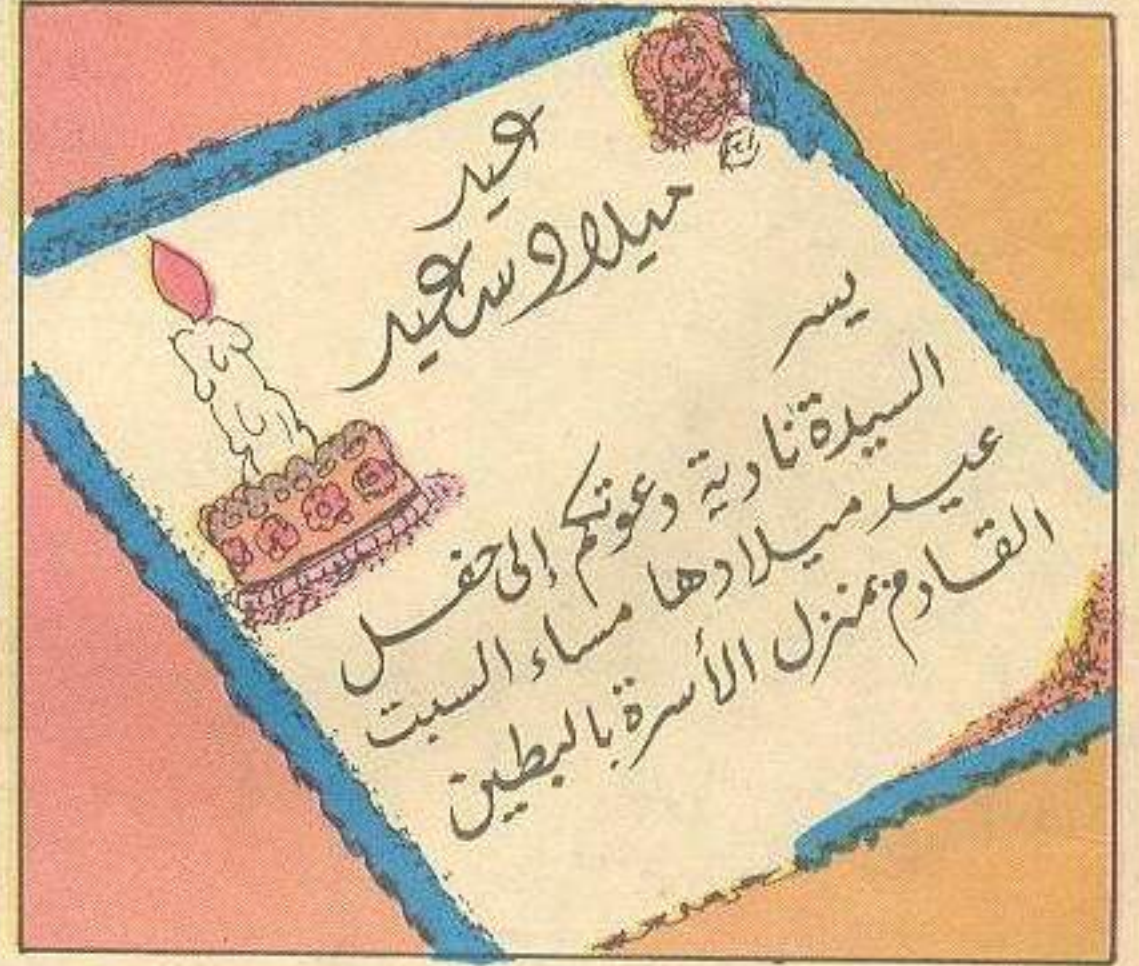 عيد
ميلاد سعيد
يسر
السيدة نادية دعوتكم إلى حفل
عيد ميلادها مساء السبت
القادم بمنزل الأسرة بالبطين